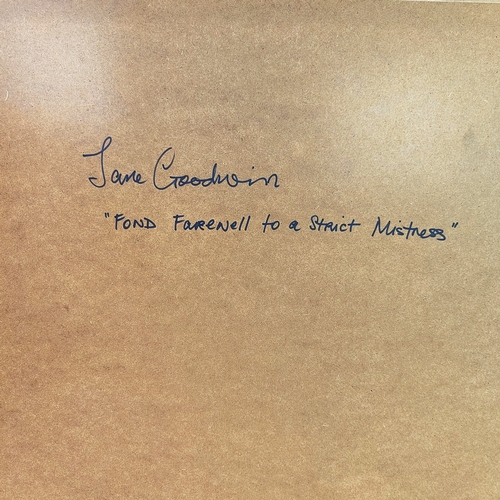 Jane Goodwin
"FOND FAREWell to a Strict Mistress"